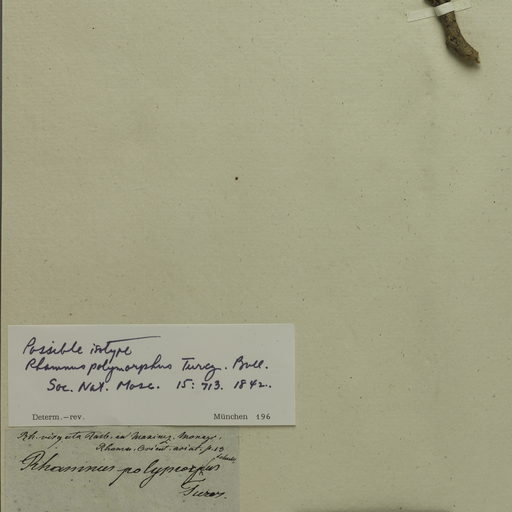 Possible isotype
Rhamnus polymorphus Turcz. Bull.
Soc. Nat. Mosc. 15: 713. 1842.
Determ.—rev. München 196
Rh. virgata Roxb. ex Maximz. Monogr.
Rhamn. Orient. asiat. p. 13
Rhamnus polymorphus
Turcz.